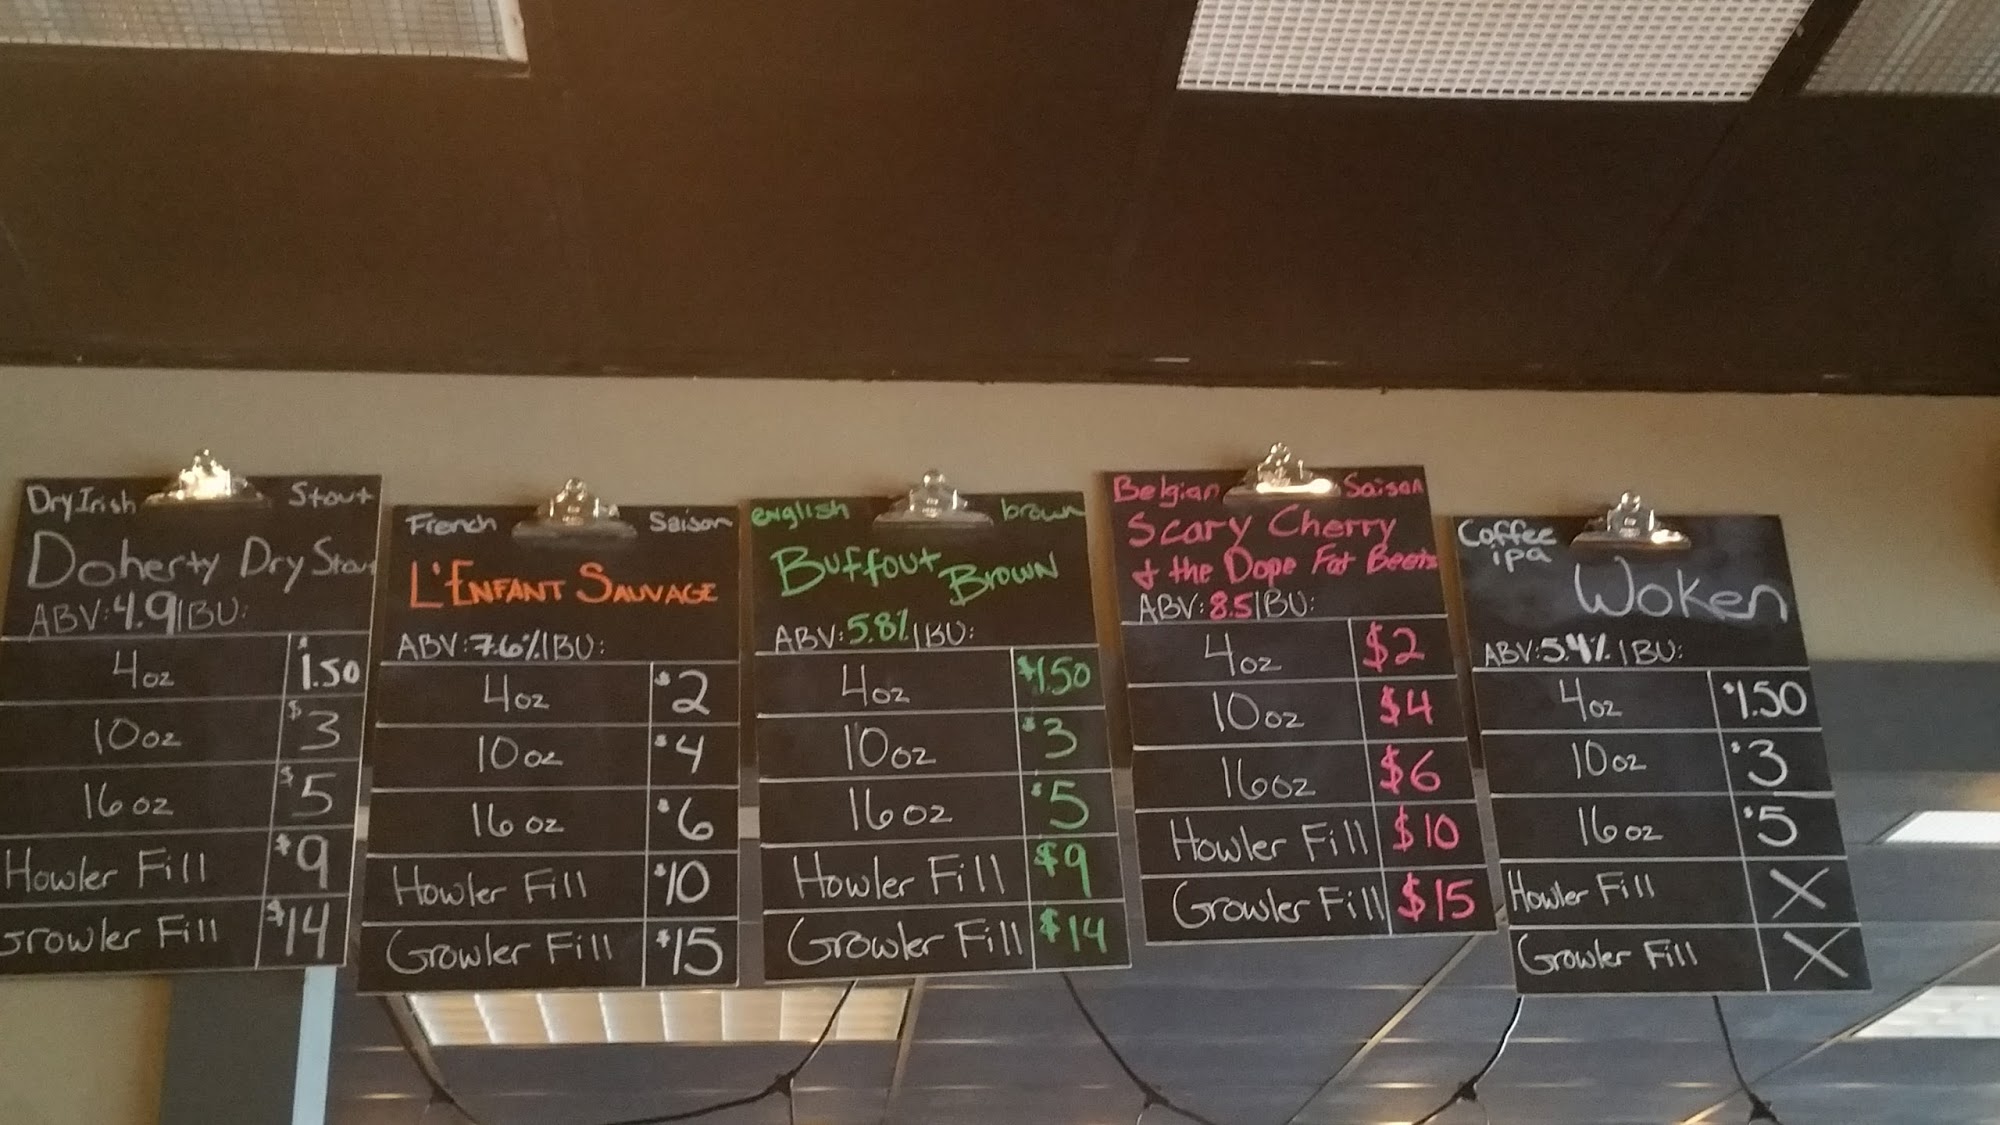 Dry Irish Stout
Doherty Dry Stout
ABV: 4.9 IBU:
4oz $1.50
10oz $3
16oz $5
Howler Fill $9
Growler Fill $14
French Saison
L'ENFANT SAUVAGE
ABV: 7.6% IBU:
4oz $2
10oz $4
16oz $6
Howler Fill $10
Growler Fill $15
english brown
BUFFOUT BROWN
ABV: 5.8% IBU:
4oz $1.50
10oz $3
16oz $5
Howler Fill $9
Growler Fill $14
Belgian Saison
Scary Cherry
& the Dope Fat Beets
ABV: 8.5 IBU:
4oz $2
10oz $4
16oz $6
Howler Fill $10
Growler Fill $15
Coffee
ipa
Woken
ABV: 5.4% IBU:
4oz $1.50
10oz $3
16oz $5
Howler Fill X
Growler Fill X